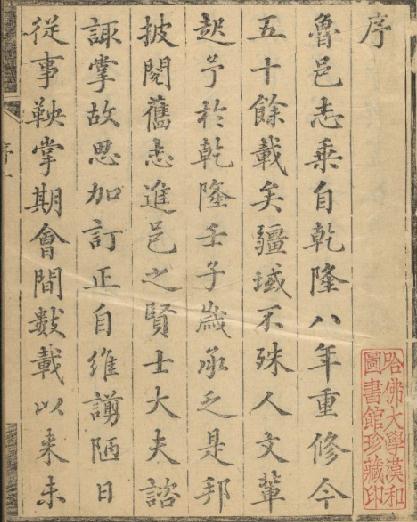 序
魯邑志乗自乾隆八年重修今
五十餘載矣疆域不殊人文輩
起予於乾隆壬子歲承乏是邦
披閱舊志進邑之賢士大夫諮
諏掌故思加訂正自維謭陋日
從事鞅掌期會間數載以來未
哈佛大學漢和
圖書館珍藏印
序